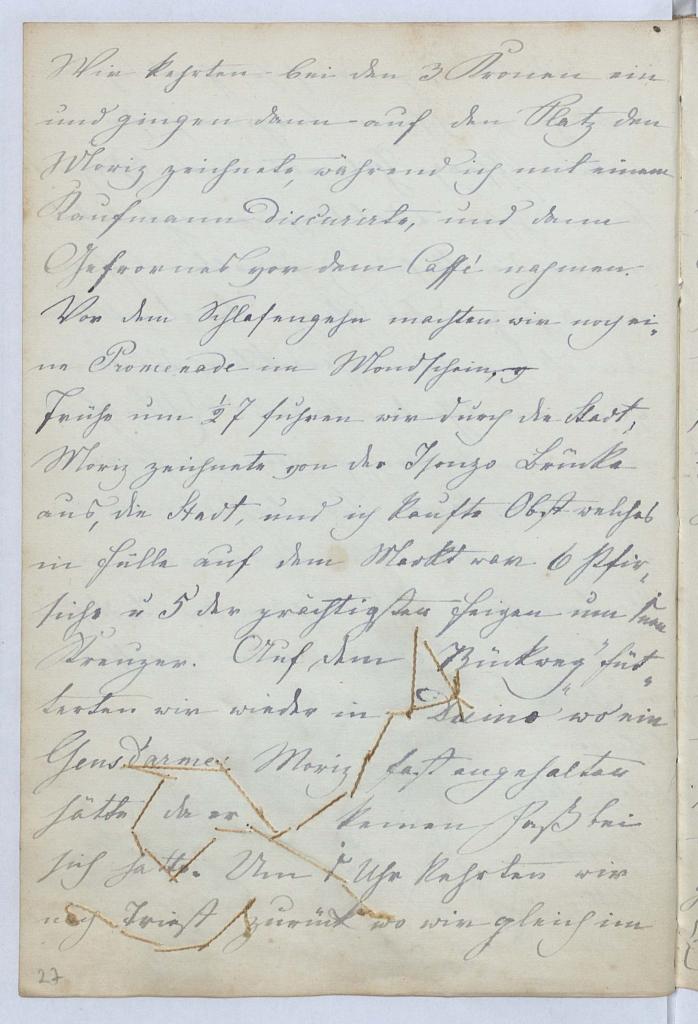 Wir kehrten bei den 3 Kronen ein
und gingen dann auf den Platz den
Moriz zeichnete, während ich mit einem
Kaufmann discurirte, und dann
Gefrornes vor dem Caffé nahmen.
Vor dem Schlafengehn machten wir noch ei-
ne Promenade im Mondschein,
Früh um ½ 7 fuhren wir durch die Stadt,
Moriz zeichnete von der Isonzo Brücke
aus, die Stadt, und ich kaufte Obst welches
in Fülle auf dem Markt war 6 Pfir-
siche u 5 der prächtigsten Feigen um
Kreuzer. Auf dem Rückweg füt-
terten wir wieder in Duino wo ein
Gensdarme Moriz fast angehalten
hätte da er keinen Paß bei
sich hatte. Um Uhr kehrten wir
nach Triest zurück wo wir gleich im
27